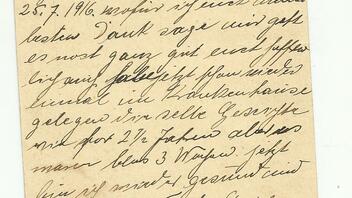 25.7.1916. wofür ich euch
besten Dank sage mir geht
es noch ganz gut euch hoffen
lich auch habe jetzt schon wieder
einmal im Krankenhause
gelegen die selbe Geschichte
wie vor 2 1/2 Jahren aber es
waren blos 3 Wochen jetzt
bin ich wieder gesund und